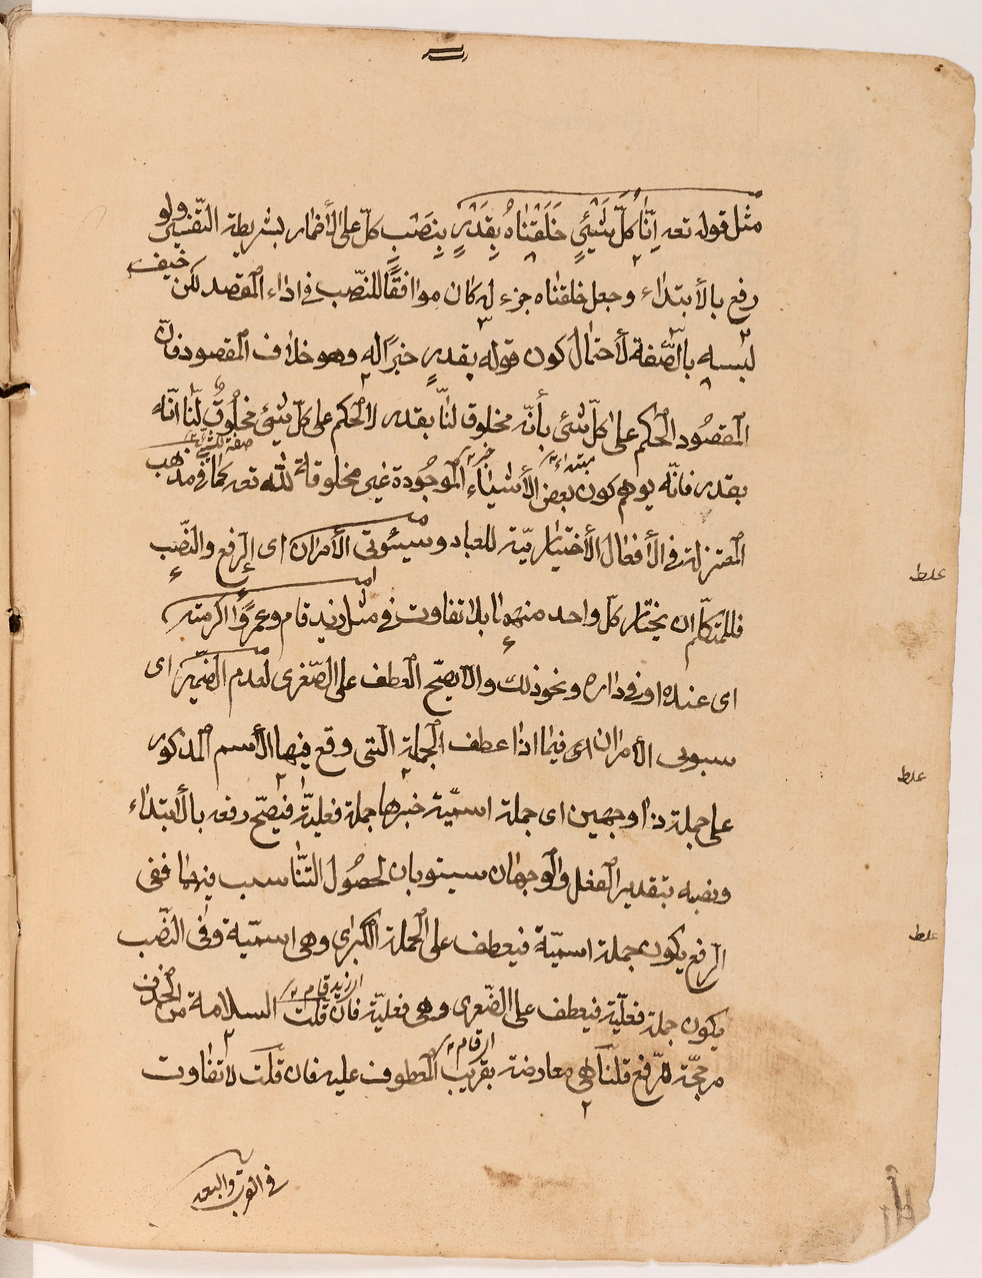 مثل قوله تعه اِنّٰا كُلَّ شَيْئٍ خَلَقْنٰاهُ بِقَدَرٍ بِنَصْبِ كلّ على الأضمار بشريطة التّفسير ولو
رفع بالأبتداء وجعل خلقناه جزء له كان موافقًا للنّصب فى اداء المقصد لكن خيف
لبسه بالصّفة لأحتمال كون قوله بقدرٍ خبرًا له وهو خلاف المقصود فانّ
المقصُود الحكم على كلّ شئى بأنّه مخلوق لنٰا بقدر لا الحكم على كلّ شيئى مخلُوقٌ لنٰا انّه
مبتداء خبر صفة
بقدر فانّه يوهم كون بعض الأشيٰاء الموجُودة غير مخلوقة للّه تعه كمٰا فى مذهب
المعتزلة فى الأفعٰال الأختياريّة للعباد وسيئوتى الأمرٰان اى الرّفع والنّصب
فللمتكلّم ان يختار كلّ واحد منهمٰا بلا تفاوت فى مثل زيد قام وعمرًوا اكرمته
اى عنده او فى داره ونحو ذلك والّا لايصحّ العطف على الصّغرى لعدم الضّمير اى
سيوى الأمرٰان اى فيمٰا اذا عطف الجملة الّتى وقع فيها الأسم المذكور
على جملة ذٰا وجهين اى جملة اسميّة خبرها جملة فعليّة فيصّح رفعه بالأبتداء
ونصبه بتقدير الفعل والوجهان سيتويان لحصُول التنّٰاسب فيهما ففى
الرّفع يكون جملة اسميّة فيعطف على الجملة الكبرٰى وهى اسميّة وفى النّصب
اى زيد قام
يكون جملة فعليّة فيعطف على الصّغرى وهى فعليّة فان قلت السلامة من الحذف
اى قام
مرجحّة للرّفع قلنٰا هى معارضة بقرب المعطوف عليه فان قلت لا تفاوت
فى القرب والبعد
غلط
غلط
غلط